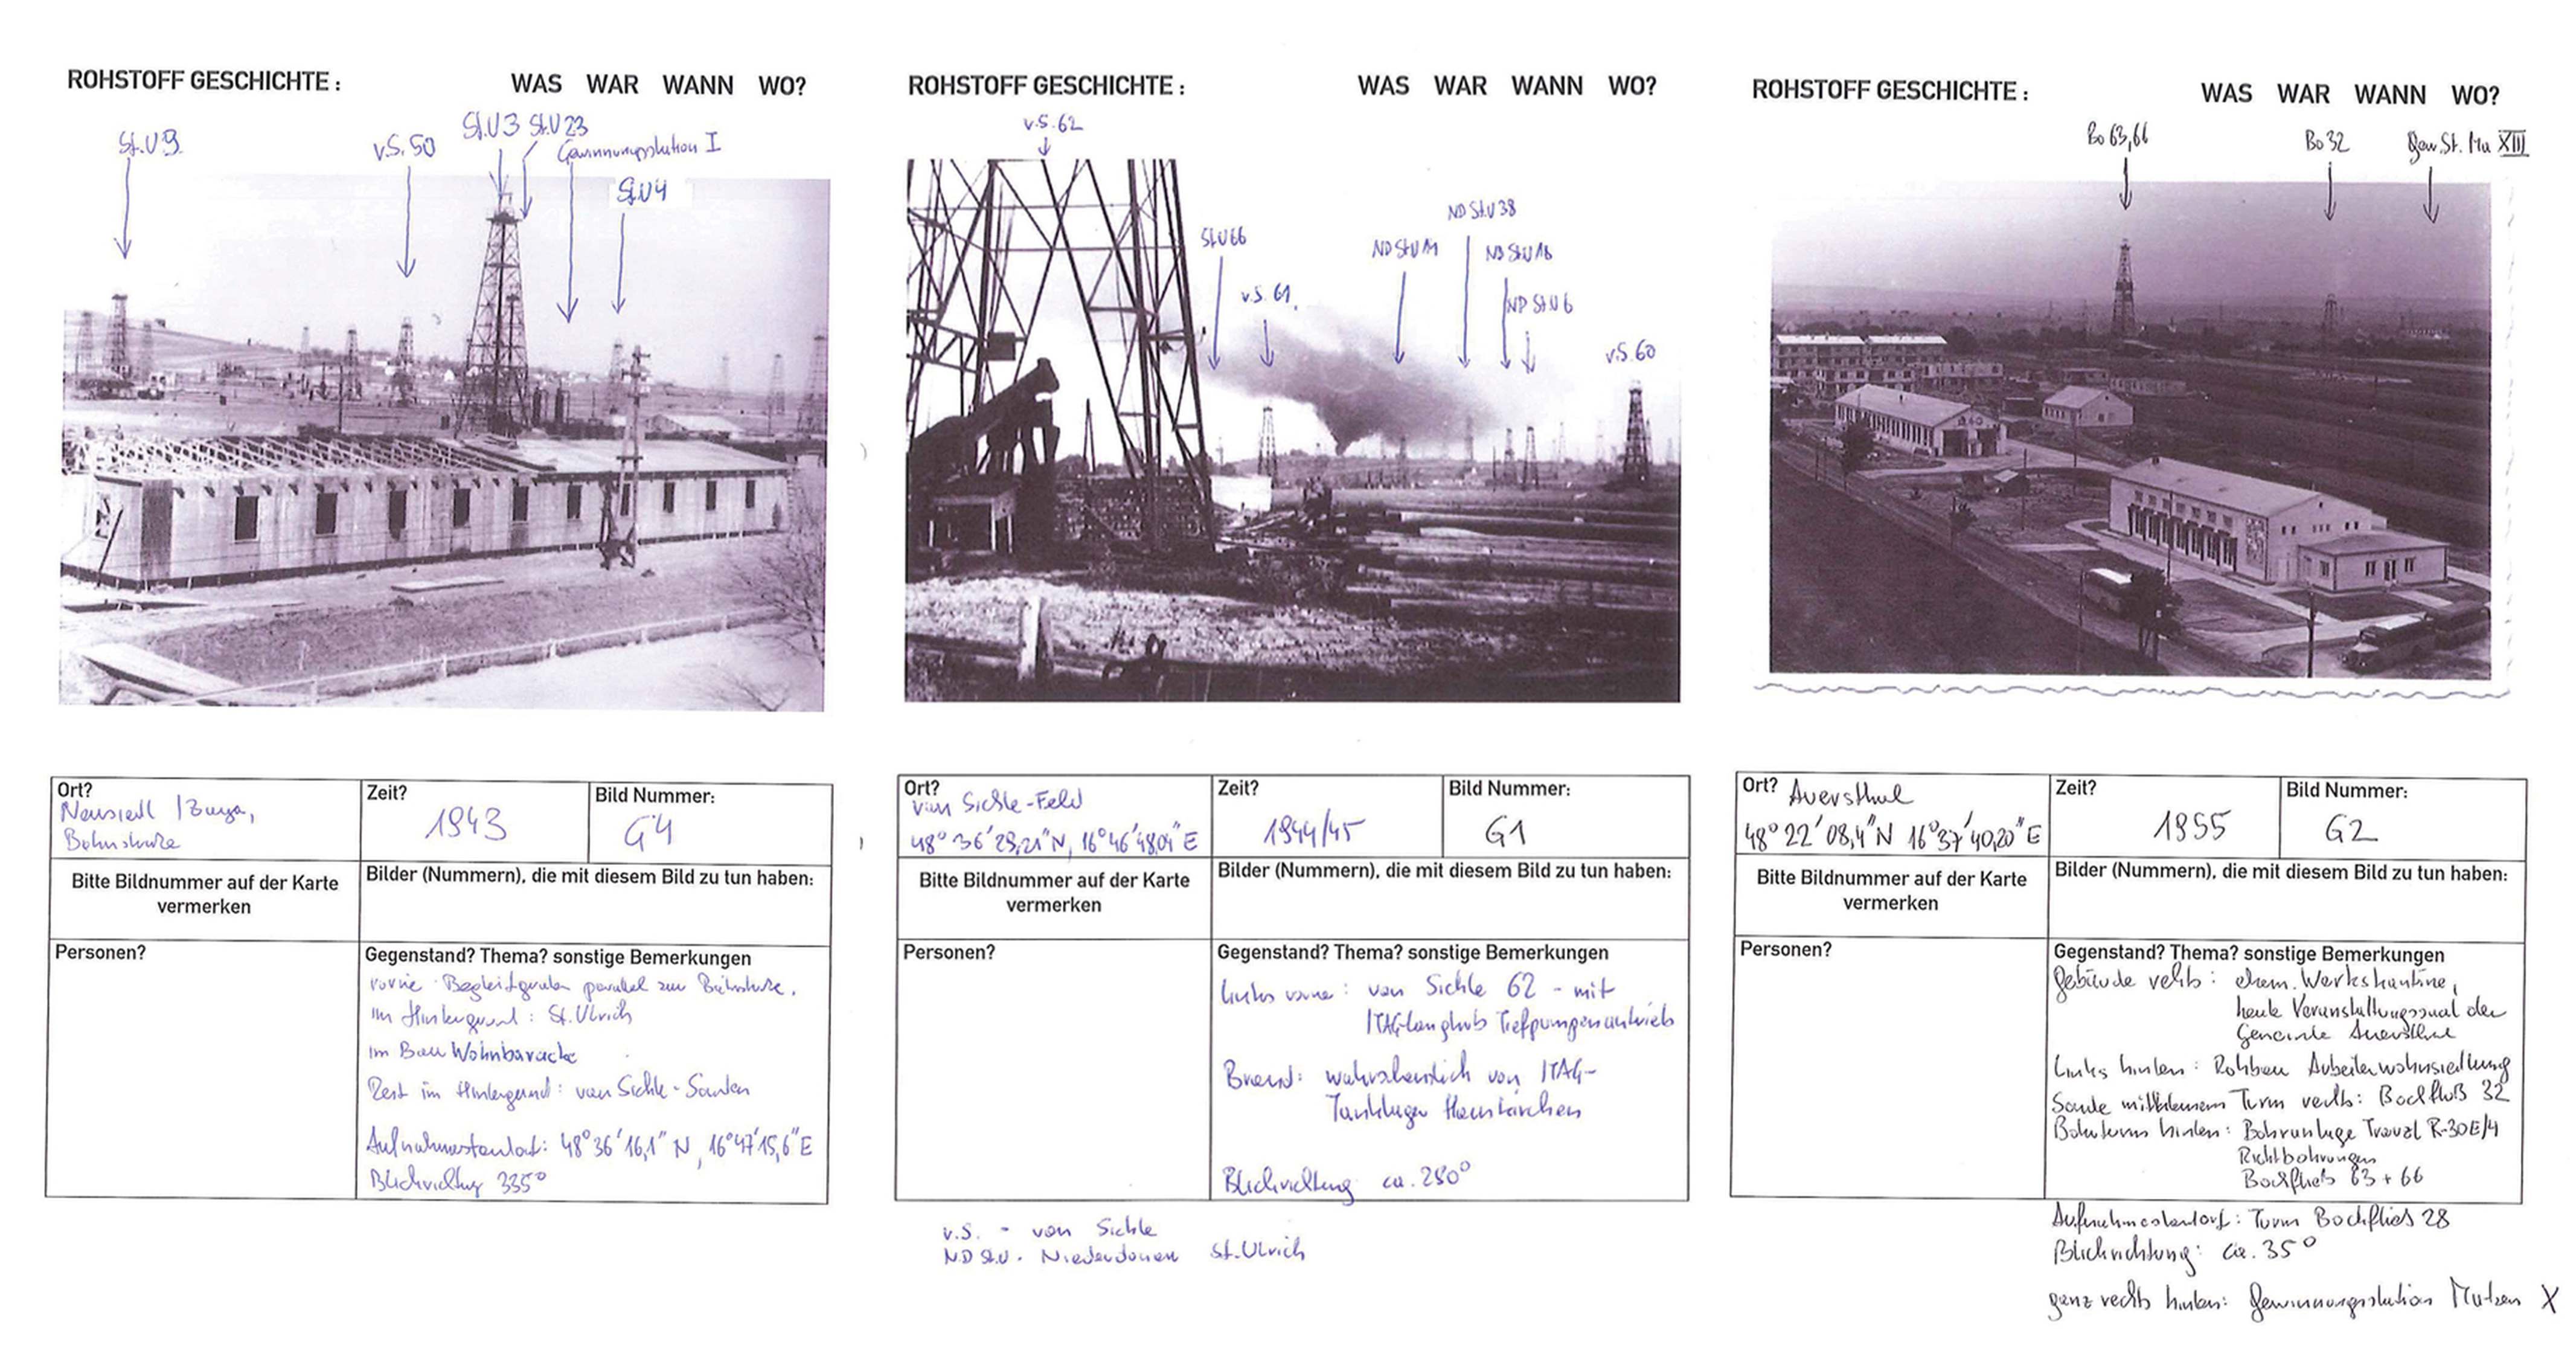 ROHSTOFF GESCHICHTE :
WAS WAR WANN WO?
St.U9
v.S. 50
St.U3
St.U23
Gewinnungsstation I
St.U4
Ort?
Neusiedl /Zaya,
Bahnstraße
Zeit?
1943
Bild Nummer:
G4
Bitte Bildnummer auf der Karte
vermerken
Bilder (Nummern), die mit diesem Bild zu tun haben:
Personen?
Gegenstand? Thema? sonstige Bemerkungen
vorne Begleitgraben parallel zur Bahnstraße.
im Hintergrund: St.Ulrich
im Bau Wohnbaracke
Rest im Hintergrund: van Sickle-Sonden
Aufnahmestandort: 48° 36' 16,1" N, 16°47'15,6" E
Blickrichtung 335°
ROHSTOFF GESCHICHTE :
WAS WAR WANN WO?
v.S. 62
St.U66
v.S. 61
ND St.U
ND St.U 38
ND St.U
ND St.U 6
v.S. 60
Ort?
van Sickle-Feld
48° 36' 29,21" N, 16° 46' 48,04" E
Zeit?
1944/45
Bild Nummer:
G1
Bitte Bildnummer auf der Karte
vermerken
Bilder (Nummern), die mit diesem Bild zu tun haben:
Personen?
Gegenstand? Thema? sonstige Bemerkungen
links vorne: van Sickle 62 - mit
ITAG-langhub Tiefpumpenantrieb
Brand: wahrscheinlich von ITAG-
Tanklager Hauskirchen
Blickrichtung ca. 280°
v.S. - van Sickle
N.D St.U. - Niederdonau St.Ulrich
ROHSTOFF GESCHICHTE :
WAS WAR WANN WO?
Bo 63,66
Bo 32
Gew.St. Ma XIII
Ort? Auersthal
48° 22' 08,4" N 16° 37' 40,20" E
Zeit?
1955
Bild Nummer:
G2
Bitte Bildnummer auf der Karte
vermerken
Bilder (Nummern), die mit diesem Bild zu tun haben:
Personen?
Gegenstand? Thema? sonstige Bemerkungen
Gebäude rechts: ehem. Werkskantine,
heute Veranstaltungssaal der
Gemeinde Auersthal
Links hinten: Rohbau Arbeiterwohnsiedlung
Sonde mit kleinem Turm rechts: Bockfließ 32
Bohrturm hinten: Bohranlage Trauzl R-30E/4
Richtbohrungen
Bockfließ 63 + 66
Aufnahmestandort: Turm Bockfließ 28
Blickrichtung: ca. 35°
ganz rechts hinten: Gewinnungsstation Matzen X